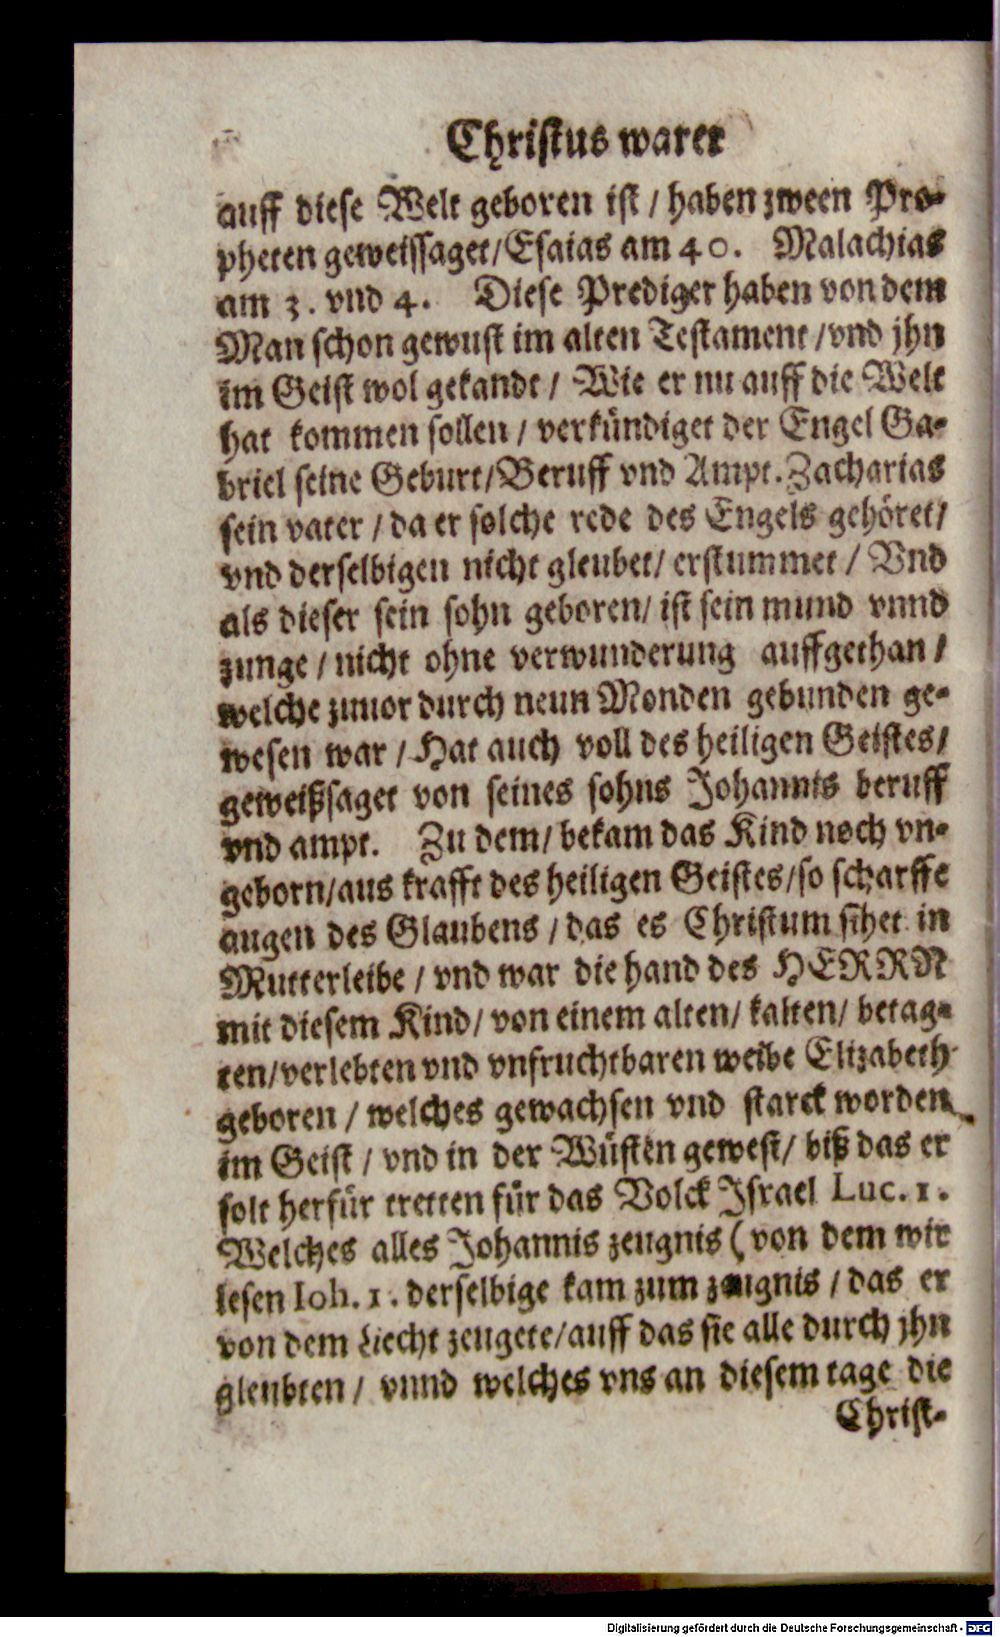 Christus warer
auff diese Welt geboren ist / haben zween Pro-
pheten geweissaget/Esaias am 40. Malachias
am 3. vnd 4. Diese Prediger haben von dem
Man schon gewust im alten Testament /vnd jhn
im Geist wol gekandt / Wie er nu auff die Welt
hat kommen sollen / verkündiget der Engel Ga-
briel seine Geburt/Beruff vnd Ampt. Zacharias
sein vater / da er solche rede des Engels gehöret/
vnd derselbigen nicht gleubet/ erstummet / Vnd
als dieser sein sohn geboren/ ist sein mund vnnd
zunge / nicht ohne verwunderung auffgethan /
welche zuuor durch neun Monden gebunden ge-
wesen war / Hat auch voll des heiligen Geistes/
geweißsaget von seines sohns Johannis beruff
vnd ampt. Zu dem/ bekam das Kind noch vn-
geborn/aus krafft des heiligen Geistes/so scharffe
augen des Glaubens / das es Christum sihet in
Mutterleibe / vnd war die hand des HERRN
mit diesem Kind/ von einem alten/ kalten/ betag-
ten/verlebten vnd vnfruchtbaren weibe Elizabeth
geboren / welches gewachsen vnd starck worden
im Geist / vnd in der Wüsten gewest/ biß das er
solt herfür tretten für das Volck Israel Luc. 1.
Welches alles Johannis zeugnis (von dem wir
lesen Ioh. 1. derselbige kam zum zeugnis / das er
von dem Liecht zeugete/auff das sie alle durch jhn
gleubten / vnnd welches vns an diesem tage die
Christ-
Digitalisierung gefördert durch die Deutsche Forschungsgemeinschaft - DFG